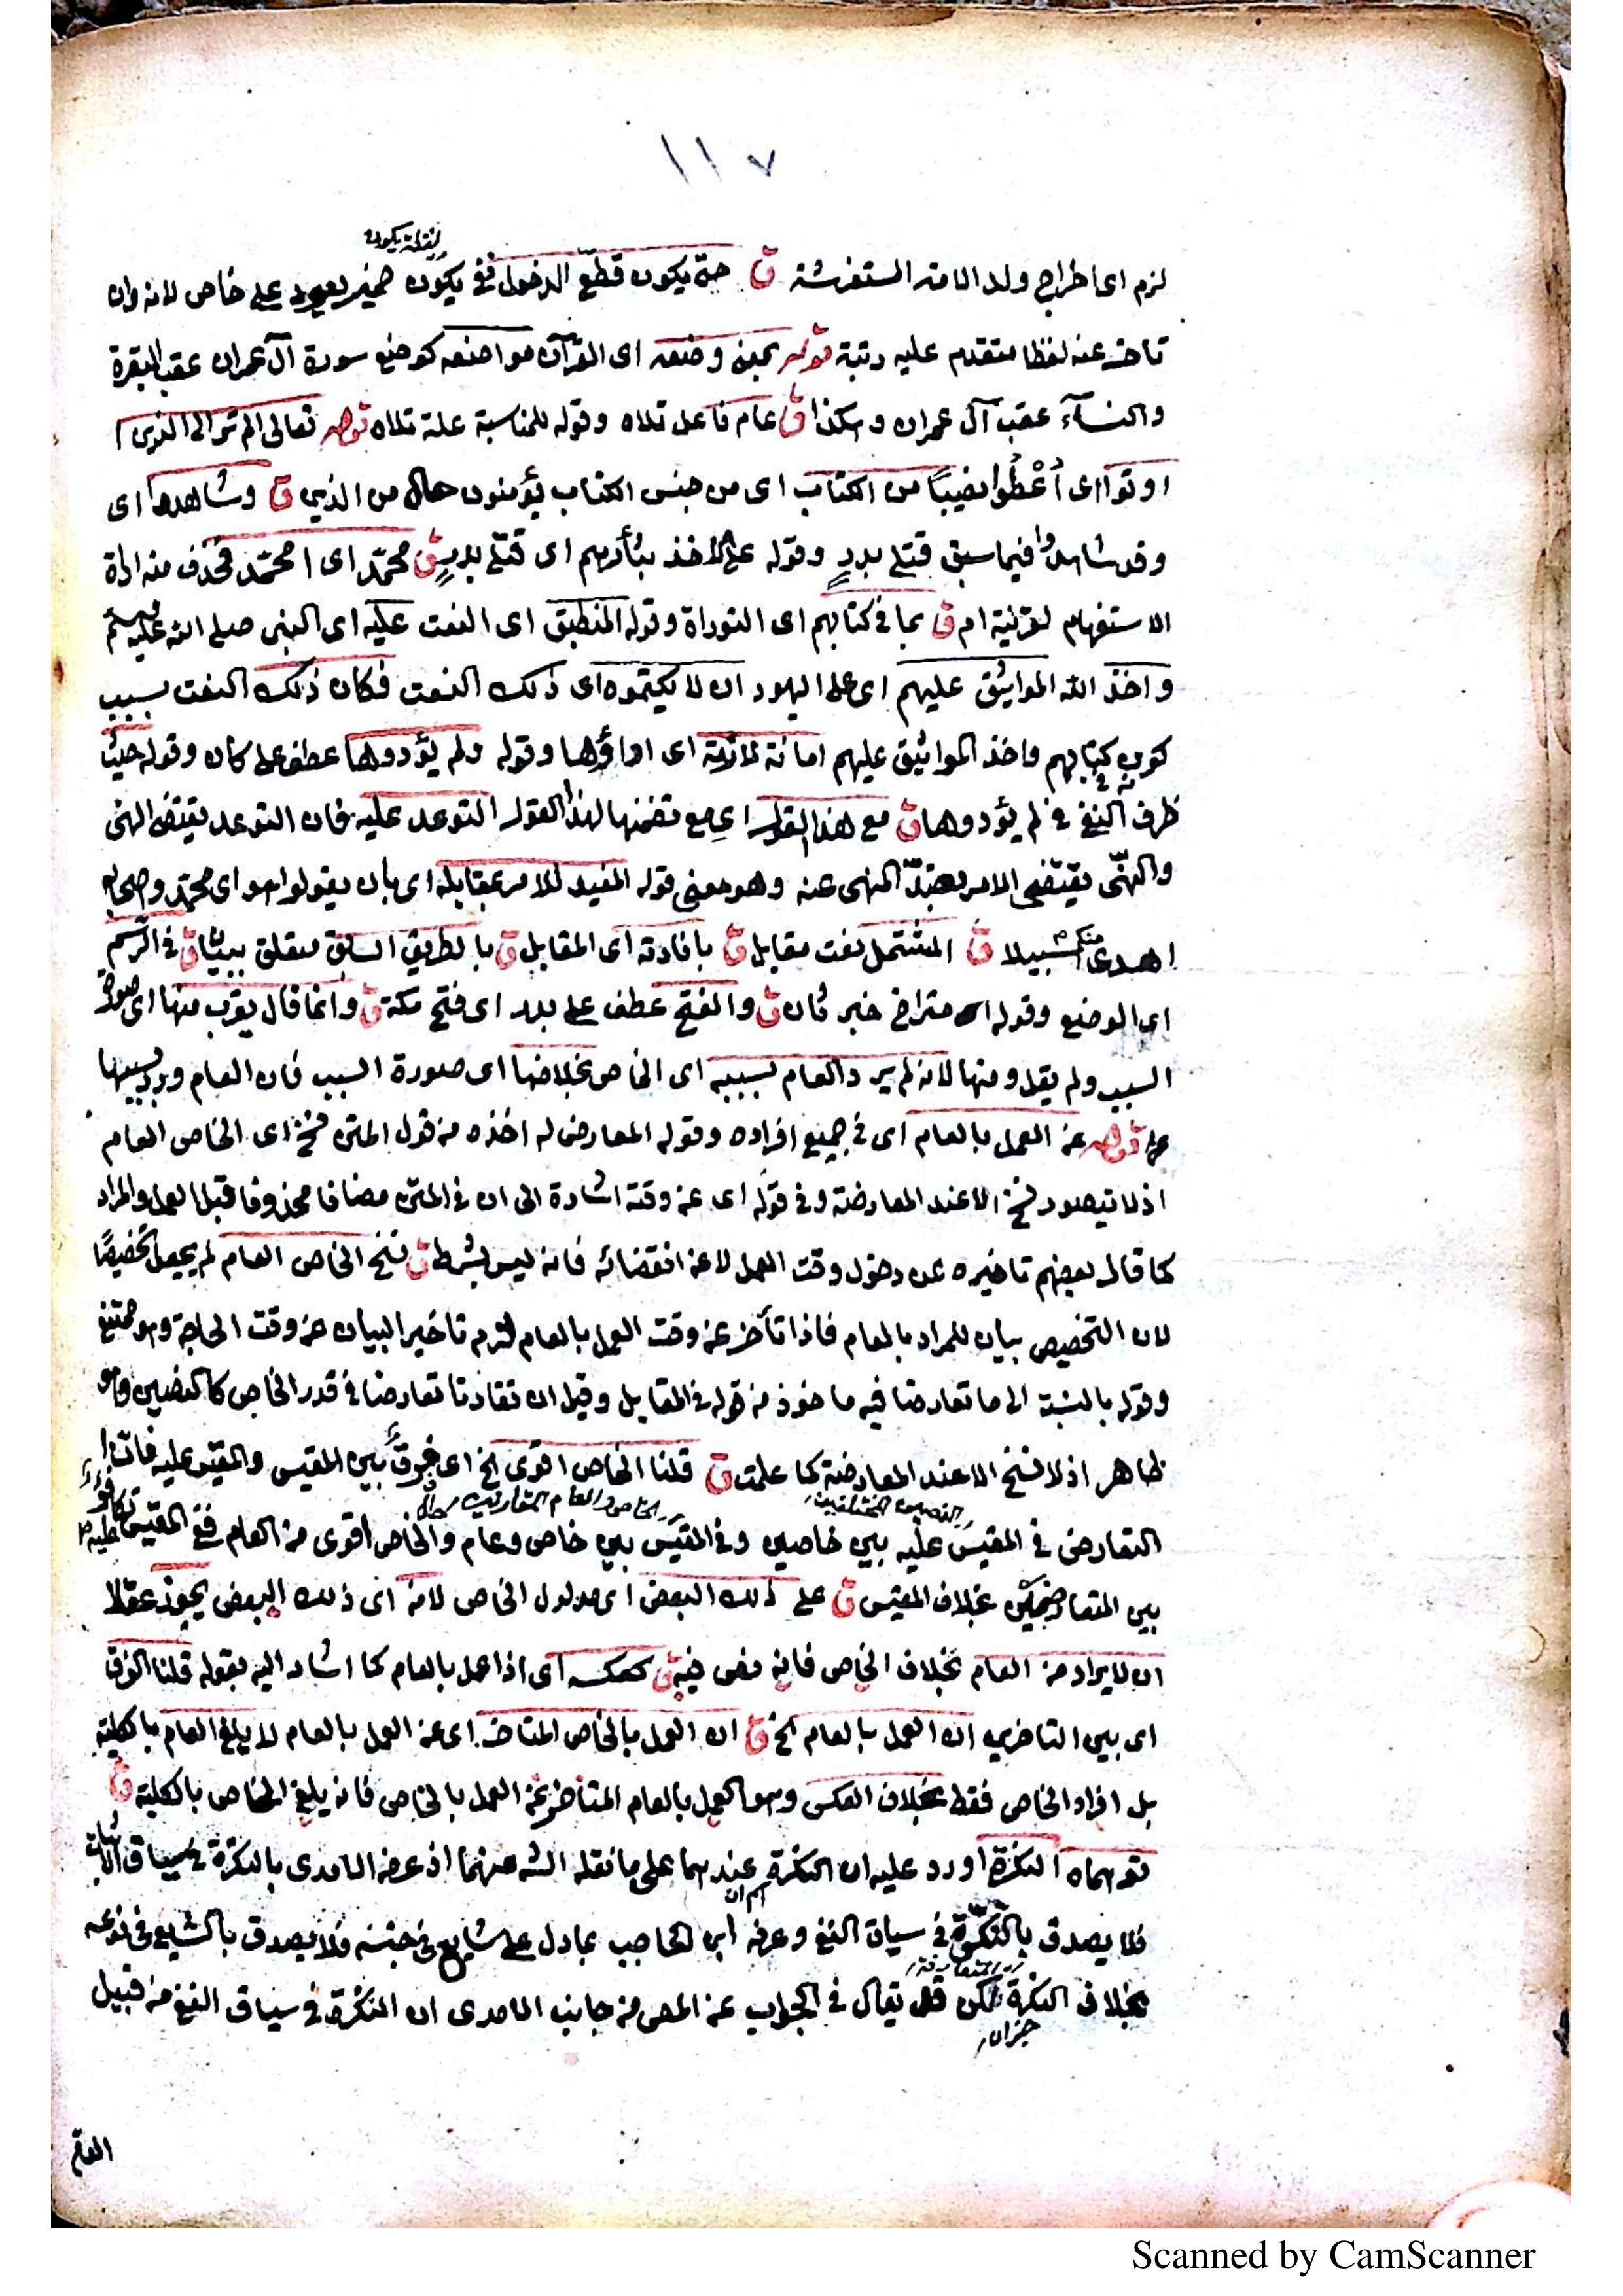 ١١٧
لزم اى اخراج ولد الامة المستفرشة ق حتى يكون قطعى الدخول ففى يكون ضمير يعود على خاص لانه وان
لفظة يكون
تاخر عنه لفظا متقدم عليه رتبة قوله بمعنى وضعه اى القرآن مواضعه كوضع سورة آل عمران عقب البقرة
والنسآء عقب آل عمران وهكذا ق عام فاعل تلاه وقوله للمناسبة علة تلاه قوله تعالى الم تر الى الذين ا
اوتوا اى أُعْطُوا نصيبًا من الكتاب اى من جنس الكتاب يؤمنون حال من الذين ق وشاهدوا اى
وقد شاهدوا فيما سبق قتلى بدر وقوله على الاخذ بثأرهم اى قتلى بدر ق محمّد اى ا محمّد فحذف منه اداة
الاستفهام لقرينة ام ق بما فى كتابهم اى التوراة وقوله المنطبق اى النعت عليه اى النبى صلى الله عليه وسلم
واخذ الله المواثيق عليهم اى على اليهود ان لا يكتموه اى ذلك النعت فكان ذلك النعت بسبب
كونه فى كتابهم واخذ المواثيق عليهم امانة لازمة اى اداؤها وقوله ولم يؤدوها عطف على كان وقوله حيث
ظرف النفى فى لم يؤدوها ق مع هذا القول اى مع تضمنها لهذا القول التوعد عليه فان التوعد يقتضى النهى
والنهى يقتضى الامر بضدّ المنهى عنه وهو معنى قوله المفيد للامر بمقابله اى بان يقولوا هو اى محمّد وصحابه
اهدى منكم سبيلا ق المشتمل نعت مقابل ق بافادته اى المقابل ق بالطريق السابق متعلق ببيان ق فى الرسم
اى الوضع وقوله اى متراخ خبر كان ق والفتح عطف على بدر اى فتح مكة ق وانما قال يقرب منها اى صورة
السبب ولم يقل ومنها لانه لم يرد العام بسببه اى الخاص بخلافها اى صورة السبب فان العام ورد بسببها
قوله عن العمل بالعام اى فى جميع افراده وقوله المعارض له اخذه من قول المتن نسخ اى الخاص العام
اذ لا يتصور نسخ الا عند المعارضة وفى قوله اى عن وقته اشارة الى ان فى المتن مضافا محذوفا قبل العمل والمراد
كما قال بعضهم تاخيره عن دخول وقت العمل لا عن انقضائه فانه ليس بشرط ق نسخ الخاص العام لم يجعل تخصيصًا
لان التخصيص بيان للمراد بالعام فاذا تأخر عن وقت العمل بالعام لزم تاخير البيان عن وقت الحاجة وهو ممتنع
وقوله بالنسبة الى ما تعارضا فيه ماخوذ من قوله فى المقابل وقيل ان تقارنا تعارضا فى قدر الخاص كالنصين وهو
ظاهر اذ لا نسخ الا عند المعارضة كما علمت ق قلنا الخاص اقوى الخ اى فرق بين المقيس والمقيس عليه فان
النصين المختلفين
الخاص والعام المتقارنين
التعارض فى المقيس عليه بين خاصين وفى المقيس بين خاص وعام والخاص اقوى من العام ففى المقيس عليه تكافؤ
بين المتعارضين بخلاف المقيس ق على ذلك البعض اى مدلول الخاص لانه اى ذلك البعض يجوز عقلا
ان لا يراد من العام بخلاف الخاص فانه نص فيه ق كعكسه اى اذا عمل بالعام كما اشار اليه بقوله قلنا الفرق
اى بين التاخرين ان العمل بالعام الخ ق ان العمل بالخاص المتاخر اى عن العمل بالعام لا يلغى العام بالكلية
بل افراد الخاص فقط بخلاف العكس وهو العمل بالعام المتأخر عن العمل بالخاص فانه يلغى الخاص بالكلية ق
توهماه النكرة اورد عليه ان النكرة عندهما على ما نقله الش عنهما اذ عرف الامدى بالنكرة فى سياق الاثبات
فلا يصدق بالنكرة فى سياق النفى وعرفه ابن الحاجب بما دل على شايع فى جنسه فلا يصدق بالشايع فى نوعه
بخلاف النكرة لكن قد يقال فى الجواب عن المص من جانب الامدى ان النكرة فى سياق النفى من قبيل
العام
Scanned by CamScanner